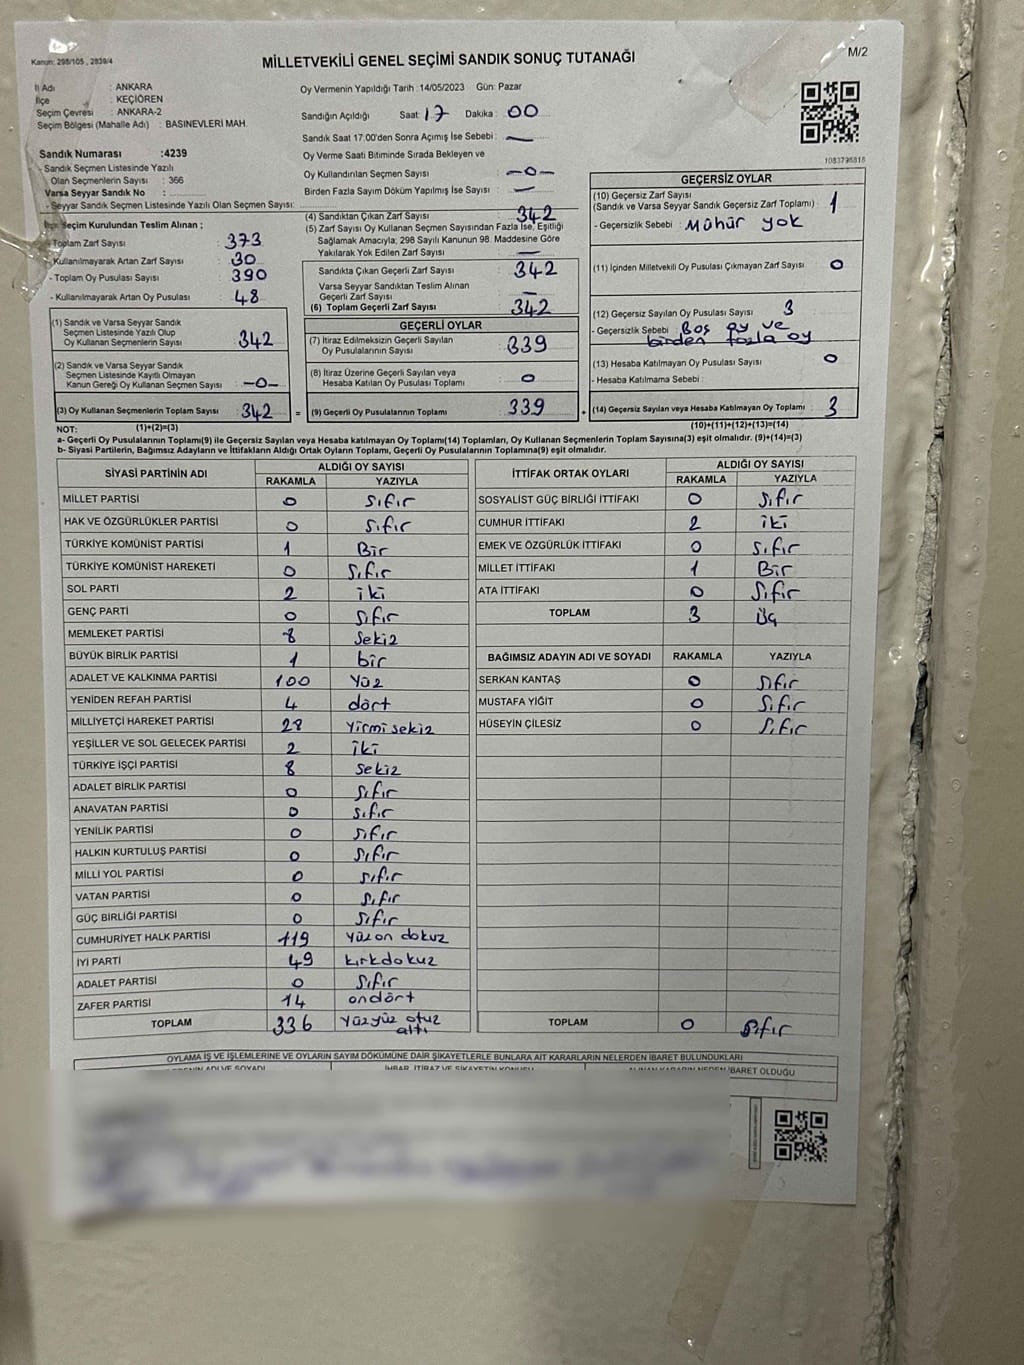 Kanun: 298/105 , 2839/4
MİLLETVEKİLİ GENEL SEÇİMİ SANDIK SONUÇ TUTANAĞI
M/2
İl Adı : ANKARA
İlçe : KEÇİÖREN
Seçim Çevresi : ANKARA-2
Seçim Bölgesi (Mahalle Adı) : BASINEVLERİ MAH.
Sandık Numarası :4239
- Sandık Seçmen Listesinde Yazılı
Olan Seçmenlerin Sayısı : 366
Varsa Seyyar Sandık No :
- Seyyar Sandık Seçmen Listesinde Yazılı Olan Seçmen Sayısı:
Oy Vermenin Yapıldığı Tarih : 14/05/2023 Gün: Pazar
Sandığın Açıldığı Saat: 17 Dakika: 00
Sandık Saat 17:00'den Sonra Açılmış İse Sebebi : —
Oy Verme Saati Bitiminde Sırada Bekleyen ve
Oy Kullandırılan Seçmen Sayısı : -0-
Birden Fazla Sayım Döküm Yapılmış İse Sayısı : —
1083796816
Seçim Kurulundan Teslim Alınan ;
- Toplam Zarf Sayısı : 373
- Kullanılmayarak Artan Zarf Sayısı : 30
- Toplam Oy Pusulası Sayısı : 390
- Kullanılmayarak Artan Oy Pusulası : 48
(1) Sandık ve Varsa Seyyar Sandık
Seçmen Listesinde Yazılı Olup
Oy Kullanan Seçmenlerin Sayısı : 342
(2) Sandık ve Varsa Seyyar Sandık
Seçmen Listesinde Kayıtlı Olmayan
Kanun Gereği Oy Kullanan Seçmen Sayısı : -0-
(3) Oy Kullanan Seçmenlerin Toplam Sayısı : 342 =
(4) Sandıktan Çıkan Zarf Sayısı : 342
(5) Zarf Sayısı Oy Kullanan Seçmen Sayısından Fazla İse, Eşitliği
Sağlamak Amacıyla, 298 Sayılı Kanunun 98. Maddesine Göre
Yakılarak Yok Edilen Zarf Sayısı : —
Sandıkta Çıkan Geçerli Zarf Sayısı : 342
Varsa Seyyar Sandıktan Teslim Alınan
Geçerli Zarf Sayısı : —
(6) Toplam Geçerli Zarf Sayısı : 342
GEÇERLİ OYLAR
(7) İtiraz Edilmeksizin Geçerli Sayılan
Oy Pusulalarının Sayısı : 339
(8) İtiraz Üzerine Geçerli Sayılan veya
Hesaba Katılan Oy Pusulası Toplamı : 0
(9) Geçerli Oy Pusulalarının Toplamı : 339 +
GEÇERSİZ OYLAR
(10) Geçersiz Zarf Sayısı
(Sandık ve Varsa Seyyar Sandık Geçersiz Zarf Toplamı) : 1
- Geçersizlik Sebebi : Mühür yok
(11) İçinden Milletvekili Oy Pusulası Çıkmayan Zarf Sayısı : 0
(12) Geçersiz Sayılan Oy Pusulası Sayısı : 3
- Geçersizlik Sebebi : Boş oy ve
birden fazla oy
(13) Hesaba Katılmayan Oy Pusulası Sayısı : 0
- Hesaba Katılmama Sebebi :
(14) Geçersiz Sayılan veya Hesaba Katılmayan Oy Toplamı : 3
NOT: (1)+(2)=(3)
(10)+(11)+(12)+(13)=(14)
a- Geçerli Oy Pusulalarının Toplamı(9) ile Geçersiz Sayılan veya Hesaba katılmayan Oy Toplamı(14) Toplamları, Oy Kullanan Seçmenlerin Toplam Sayısına(3) eşit olmalıdır. (9)+(14)=(3)
b- Siyasi Partilerin, Bağımsız Adayların ve İttifakların Aldığı Ortak Oyların Toplamı, Geçerli Oy Pusulalarının Toplamına(9) eşit olmalıdır.
SİYASİ PARTİNİN ADI ALDIĞI OY SAYISI
RAKAMLA YAZIYLA
MİLLET PARTİSİ 0 Sıfır
HAK VE ÖZGÜRLÜKLER PARTİSİ 0 Sıfır
TÜRKİYE KOMÜNİST PARTİSİ 1 Bir
TÜRKİYE KOMÜNİST HAREKETİ 0 Sıfır
SOL PARTİ 2 iki
GENÇ PARTİ 0 Sıfır
MEMLEKET PARTİSİ 8 Sekiz
BÜYÜK BİRLİK PARTİSİ 1 bir
ADALET VE KALKINMA PARTİSİ 100 Yüz
YENİDEN REFAH PARTİSİ 4 dört
MİLLİYETÇİ HAREKET PARTİSİ 28 Yirmi sekiz
YEŞİLLER VE SOL GELECEK PARTİSİ 2 iki
TÜRKİYE İŞÇİ PARTİSİ 8 Sekiz
ADALET BİRLİK PARTİSİ 0 Sıfır
ANAVATAN PARTİSİ 0 Sıfır
YENİLİK PARTİSİ 0 Sıfır
HALKIN KURTULUŞ PARTİSİ 0 Sıfır
MİLLİ YOL PARTİSİ 0 Sıfır
VATAN PARTİSİ 0 Sıfır
GÜÇ BİRLİĞİ PARTİSİ 0 Sıfır
CUMHURİYET HALK PARTİSİ 119 Yüz on dokuz
İYİ PARTİ 49 kırkdokuz
ADALET PARTİSİ 0 Sıfır
ZAFER PARTİSİ 14 ondört
TOPLAM 336 Yüzyüz otuz
altı
İTTİFAK ORTAK OYLARI ALDIĞI OY SAYISI
RAKAMLA YAZIYLA
SOSYALİST GÜÇ BİRLİĞİ İTTİFAKI 0 Sıfır
CUMHUR İTTİFAKI 2 iki
EMEK VE ÖZGÜRLÜK İTTİFAKI 0 Sıfır
MİLLET İTTİFAKI 1 Bir
ATA İTTİFAKI 0 Sıfır
TOPLAM 3 üç
BAĞIMSIZ ADAYIN ADI VE SOYADI RAKAMLA YAZIYLA
SERKAN KANTAŞ 0 Sıfır
MUSTAFA YİĞİT 0 Sıfır
HÜSEYİN ÇİLESİZ 0 Sıfır
TOPLAM 0 Sıfır
OYLAMA İŞ VE İŞLEMLERİNE VE OYLARIN SAYIM DÖKÜMÜNE DAİR ŞİKAYETLERLE BUNLARA AİT KARARLARIN NELERDEN İBARET BULUNDUKLARI
ADI VE SOYADI İHBAR, İTİRAZ VE ŞİKAYETİN KONUSU ALINAN KARARIN NEDEN İBARET OLDUĞU